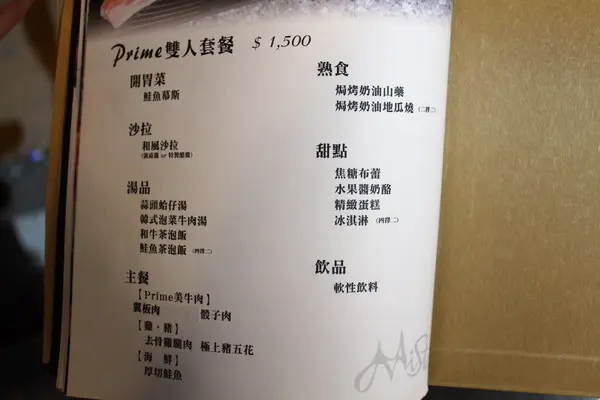 Prime雙人套餐 $1,500
開胃菜
鮭魚慕斯
沙拉
和風沙拉
湯品
蒜頭蛤仔湯
韓式泡菜牛肉湯
和牛茶泡飯
鮭魚茶泡飯 (四擇二)
主餐
【Prime美牛肉】
翼板肉 骰子肉
【雞・豬】
去骨雞腿肉 極上豬五花
【海 鮮】
厚切鮭魚
熟食
焗烤奶油山藥
焗烤奶油地瓜燒 (二擇二)
甜點
焦糖布蕾
水果醬奶酪
精緻蛋糕
冰淇淋 (四擇二)
飲品
軟性飲料